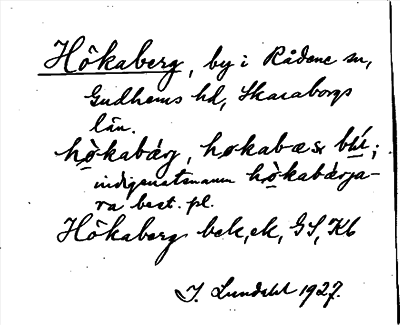 Hökaberg, by i Rådene sn,
Gudhems hd, Skaraborgs
län.
hökabärj, hökabæsr
indigenatsnamn hökabärja-
ra best. pl.
Hökaberg bek, ek, GS, Kb
I. Lundahl 1927.